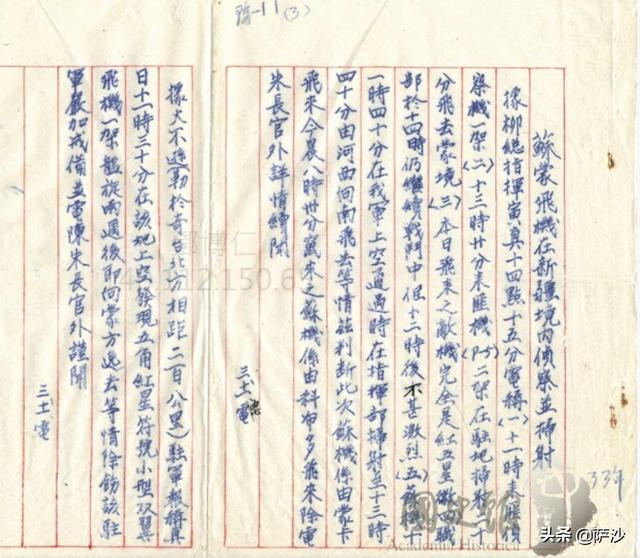 11(3)
蘇蒙飛機在新疆境內偵察並掃射
據柳總指揮寅真十四點十五分軍稱(一)十一時半匪偵
察機一架(二)十三時廿分末匪機(P-5)二架在駐地掃射
分飛去蒙境(三)本日飛來之敵機完全是紅五星徽四職
部於十四時仍繼續戰鬥中但十二時後不甚激烈(五)
一時四十分在我軍上空通過時在指揮部掃射至十三時
四十分由河西向南飛去等情茲判斷此次蘇機係由蒙卡
飛來今晨八時卅分竄來之蘇機係由科布多飛來除電
朱長官外詳情續聞
三土電
據大不遜勒於奇台北方相距二百公里)駐軍報稱真
日十一時三十分在該地上空發現五角紅星符號小型双翼
飛機一架盤旋兩週後即向蒙方逸去等情除飭該駐
軍嚴加戒備並電陳朱長官外謹聞
三土電
33年
鄧博仁
112.150.6
國史館
Academia Historica
头条@萨沙